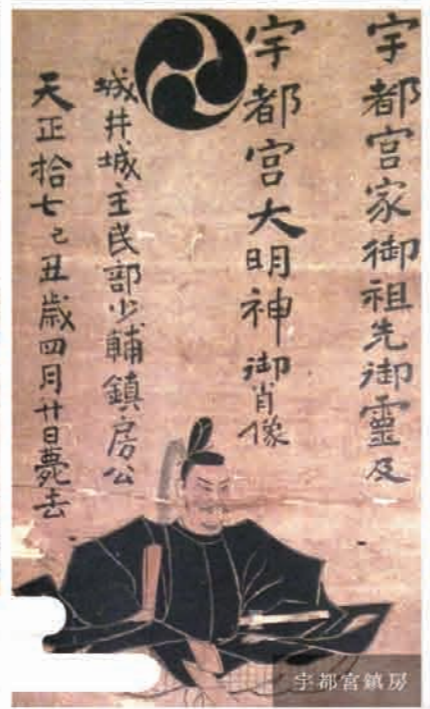 宇都宮家御祖先御靈及
宇都宮大明神御肖像
城井城主民部少輔鎮房公
天正拾七己丑歳四月廿日薨去
宇都宮鎮房